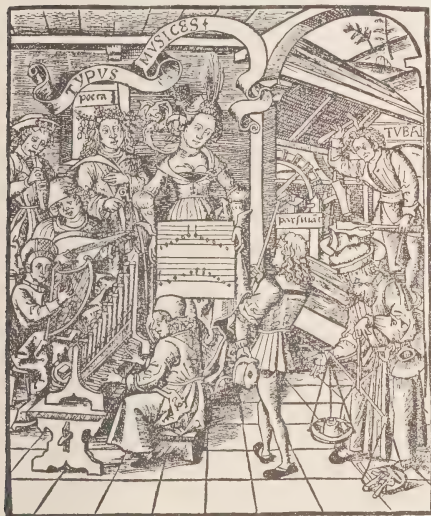 TYPVS MVSICES
poeta
TVBAL